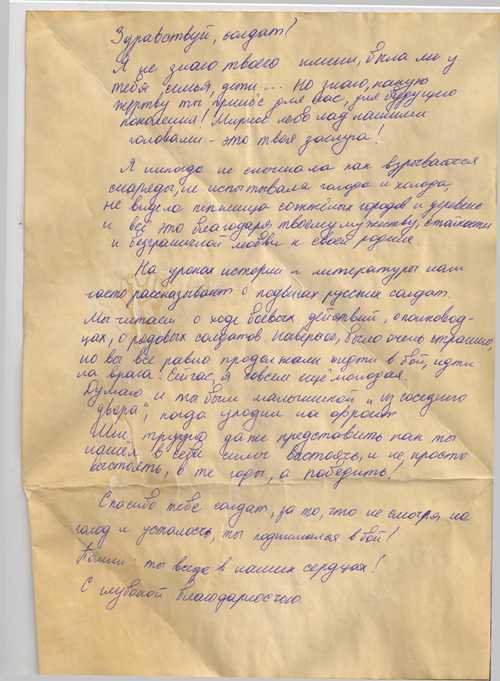 Здравствуй, солдат!
Я не знаю твоего имени, была ли у
тебя семья, дети... Но знаю, какую
жертву ты принёс для нас, для будущего
поколения! Мирное небо над нашими
головами - это твоя заслуга!
Я никогда не слышала как взрываются
снаряды, не испытывала голода и холода,
не видела пепелища сожжёных городов и деревень
и всё это благодаря твоему мужеству, стойкости
и безграничной любви к своей родине.
На уроках истории и литературы нам
часто рассказывают о подвигах русских солдат.
Мы читаем о ходе боевых действий, о полковод-
цах, о рядовых солдатов. Наверное, было очень страшно,
но вы все равно продолжали идти в бой, идти
на врага. Сейчас, я совсем ещё молодая.
Думаю, и ты был мальчишкой "из соседнего
двора", когда уходил на фронт.
Мне трудно даже представить как ты
нашёл в себе силы выстоять, и не просто
выстоять, в те годы, а победить!
Спасибо тебе солдат, за то, что не смотря на
голод и усталость, ты поднимался в бой!
Помни: ты всегда в наших сердцах!
С глубокой благодарностью.